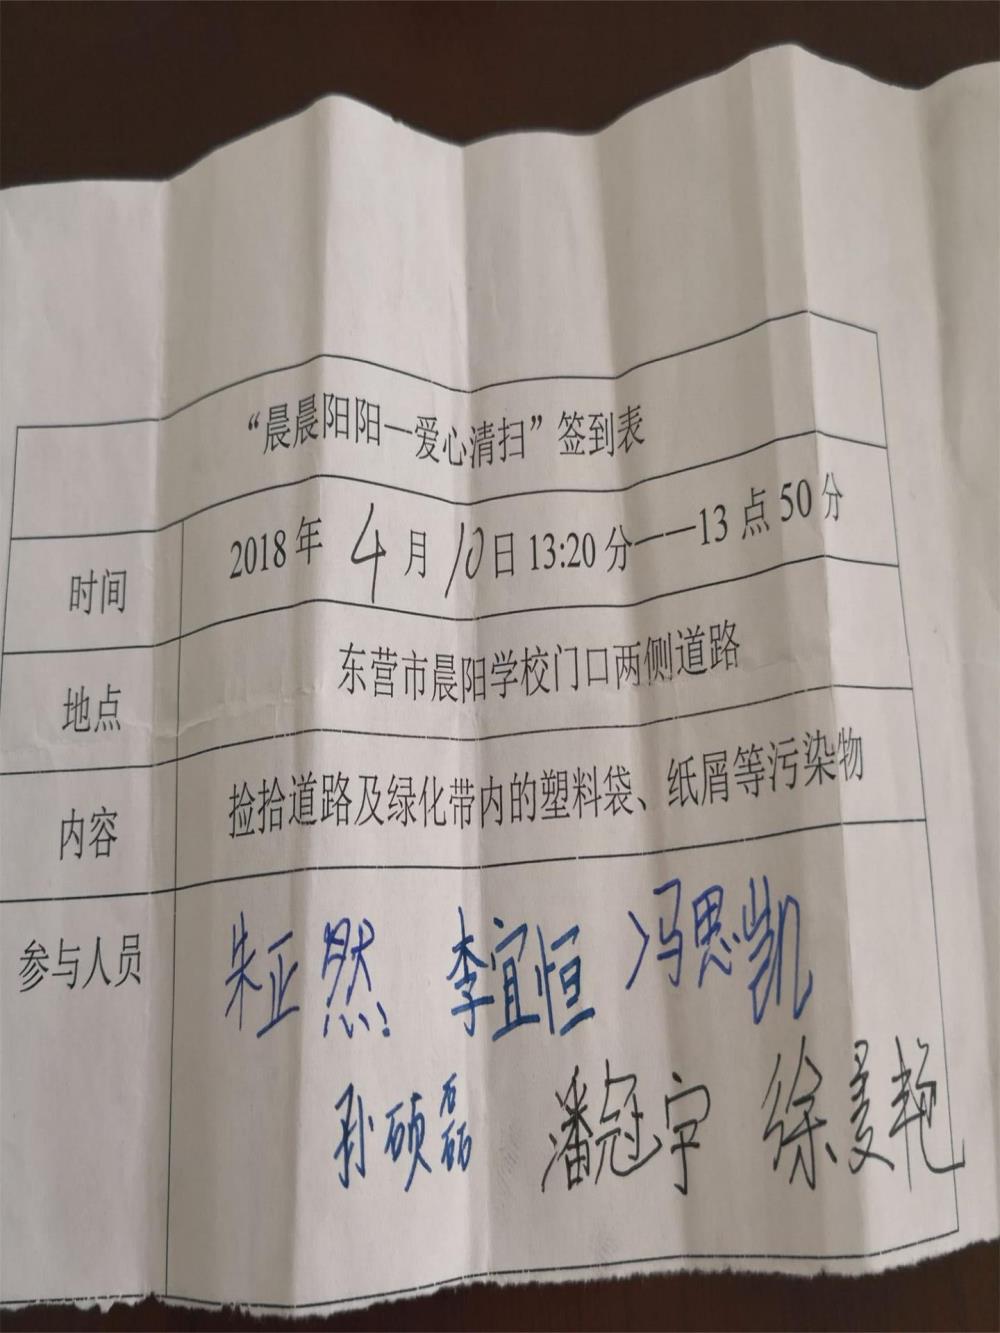 “晨晨阳阳一爱心清扫”签到表
时间 2018年4月10日13:20分——13点50分
地点 东营市晨阳学校门口两侧道路
内容 捡拾道路及绿化带内的塑料袋、纸屑等污染物
参与人员 朱正然 李宜恒 冯思凯
孙硕磊 潘冠宇 徐